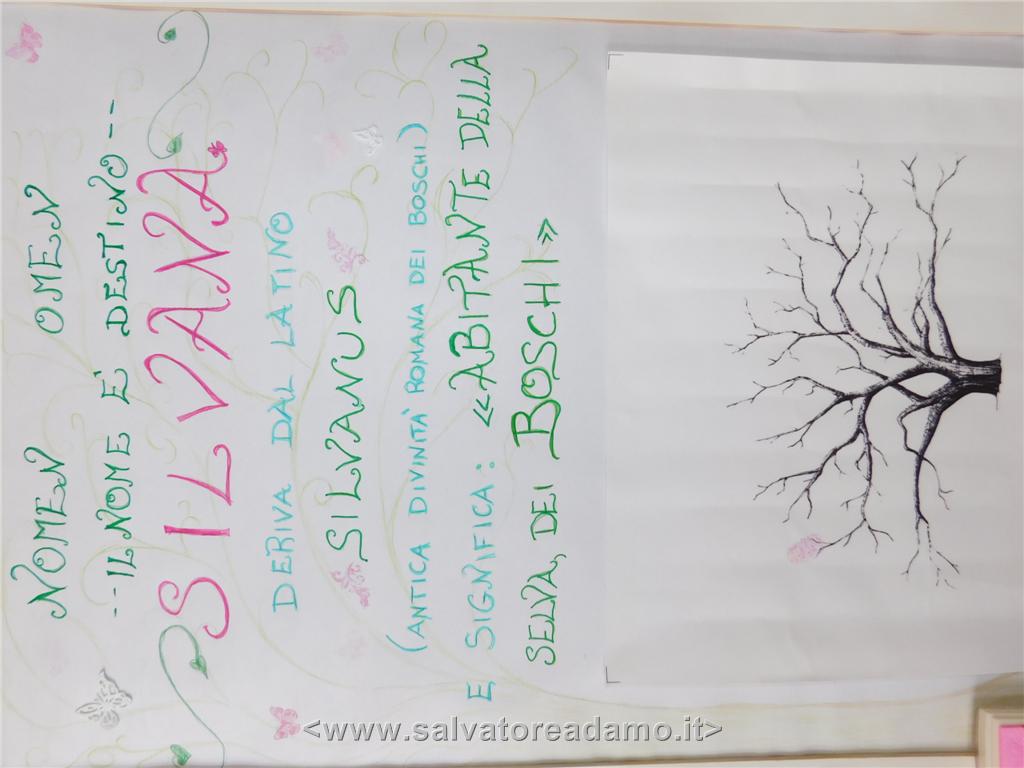 NOMEN OMEN
--IL NOME È DESTINO---
SILVANA
DERIVA DAL LATINO
SILVANUS
(ANTICA DIVINITÀ ROMANA DEI BOSCHI)
E SIGNIFICA: «ABITANTE DELLA
SELVA, DEI BOSCHI»
<www.salvatoreadamo.it>